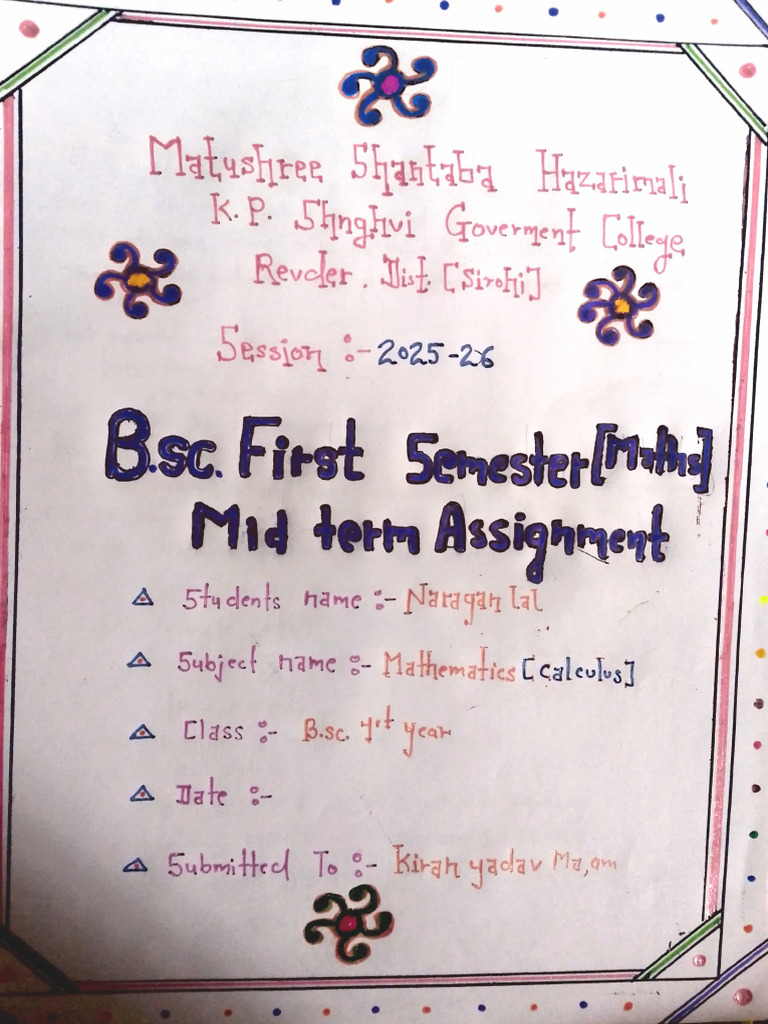 Matushree Shantaba Hazarimali
K. P. Shnghvi Goverment College
Revder. Dist. [Sirohi]
Session :- 2025-26
B.sc. First Semester [Maths]
Mid term Assignment
Students name :- Naragan lal
Subject name :- Mathematics [Calculus]
Class :- B.sc. 1st year
Date :-
Submitted To :- Kiran yadav Ma,am